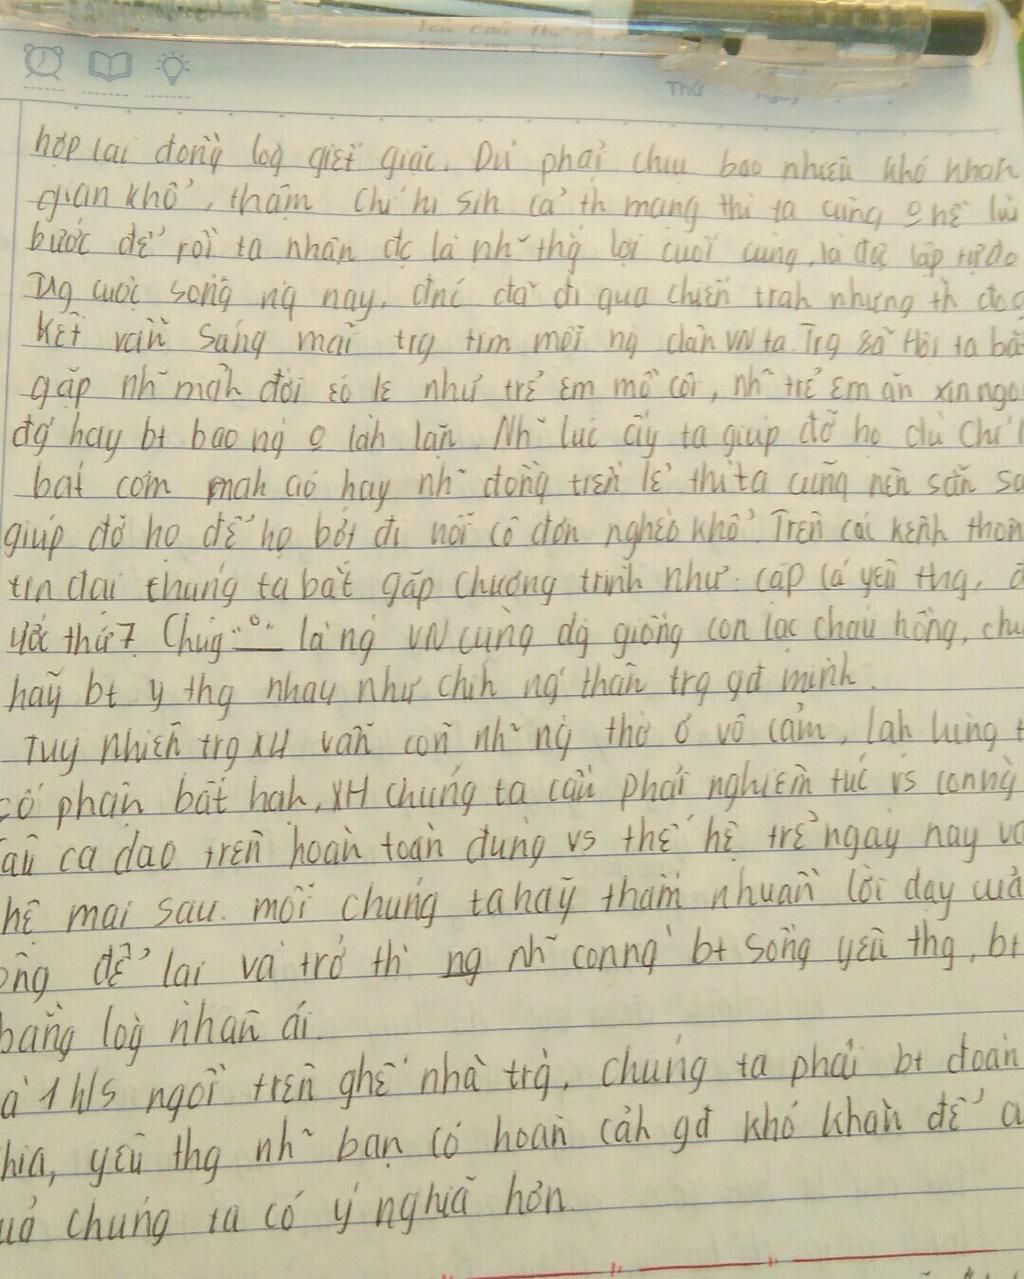 Thứ
hợp lại đồng lòg giết giặc. Dù phải chịu bao nhiêu khó khăn
gian khổ, thậm chí hi sih cả th mạng thì ta cũng o hề lùi
bước để rồi ta nhận đc là nh~ thg lợi cuối cùng, là độc lập tự do
Tr cuộc sống ng nay, đnc đã đi qua chiến trah nhưng th đog
kết vẫn sáng mãi trg tim mỗi ng dân VN ta. Trg xã Hội ta bắ
gặp nh~ mảh đời éo le như trẻ em mồ côi, nh~ trẻ em ăn xin ngo
đg hay bt bao ng o làh lặn. Nh~ lúc ấy ta giúp đỡ họ dù chỉ l
bát cơm mah áo hay nh~ đồng tiền lẻ thì ta cũng nên sẵn sà
giúp đỡ họ để họ bớt đi nỗi cô đơn nghèo khổ. Trên các kênh thôn
tin đại chúng ta bắt gặp chương trình như: cặp lá yêu thg,
ước thứ 7. Chúg là ng VN cùng dg giống con lạc cháu hồng, chú
hãy bt y thg nhau như chíh ng thân trg gđ mình.
Tuy nhiên trg XH vẫn còn nh~ ng thờ ơ vô cảm, lạh lùng t
có phận bất hạh, XH chúng ta cần phải nghiêm túc vs conng
âu ca dao trên hoàn toàn đúng vs thế hệ trẻ ngày nay và
hệ mai sau. mỗi chúng ta hãy thấm nhuần lời dạy củ
ông để lại và trở th ng nh~ conng bt sống yêu thg, bt
bằng lòg nhân ái.
à 1 h/s ngồi trên ghế nhà trg, chúng ta phải bt đoàn
hia, yêu thg nh~ bạn có hoàn cảh gđ khó khăn để
uả chúng ta có ý nghĩa hơn.